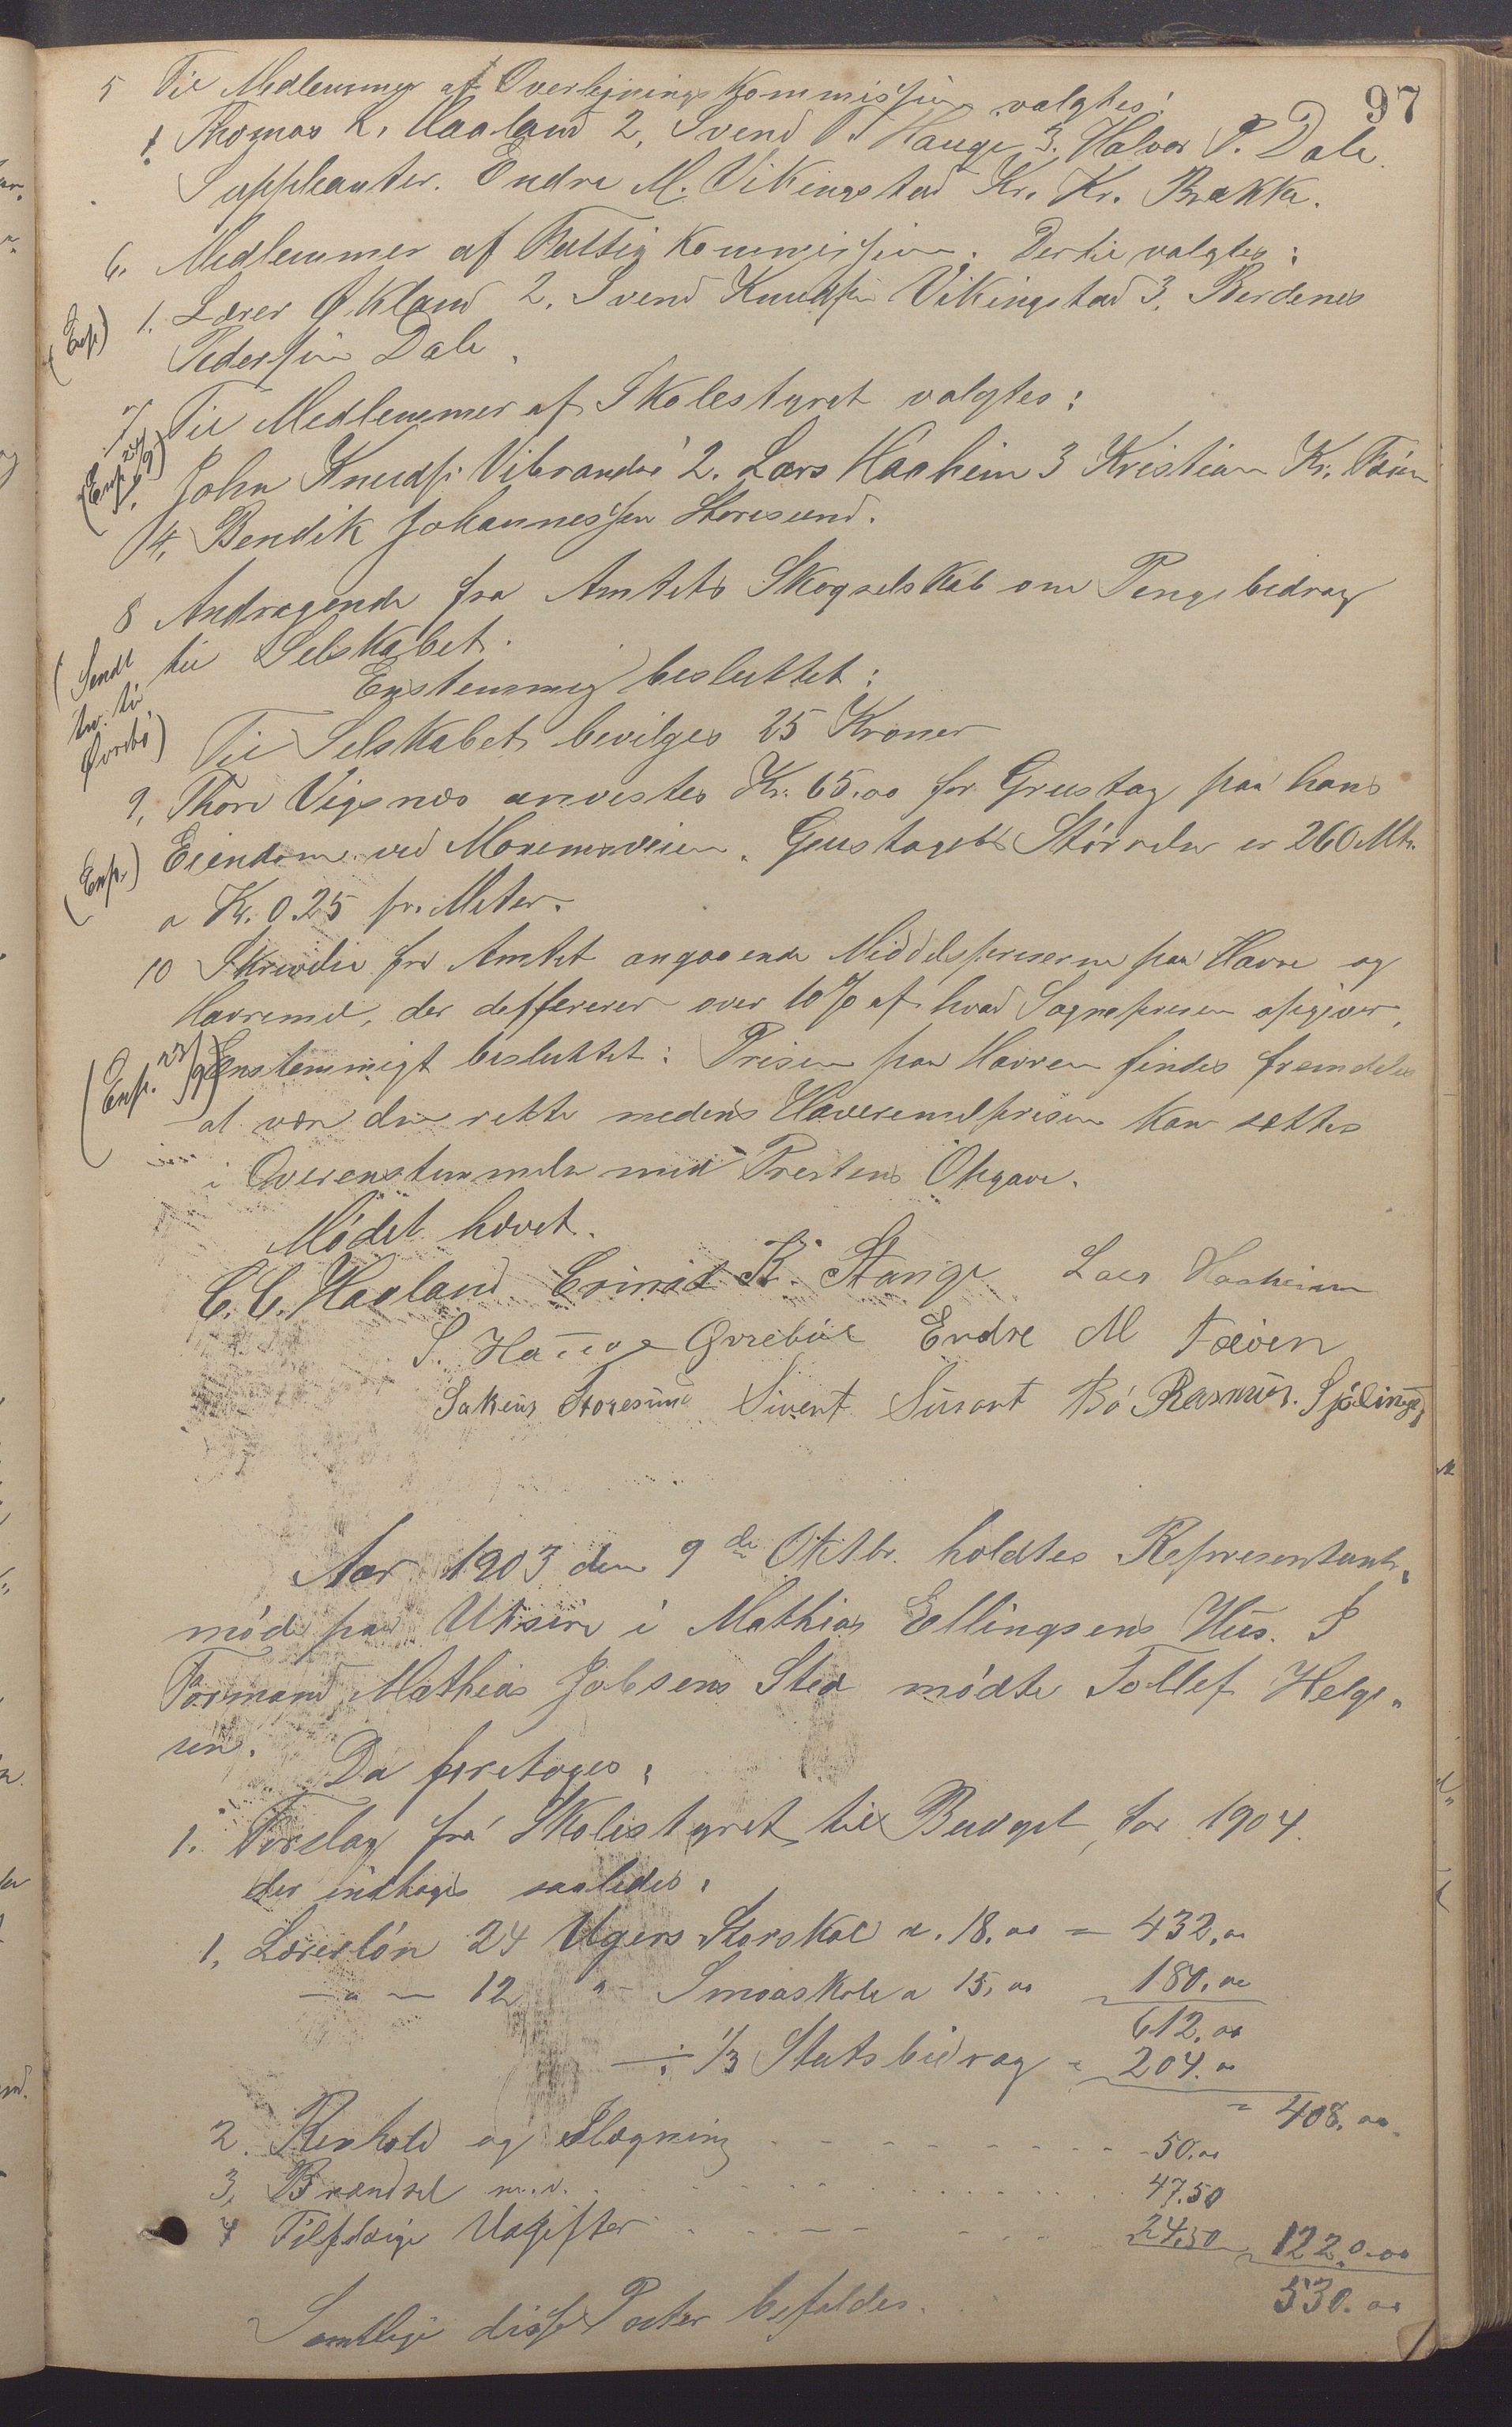 97
5 Til Medlemmer af Overligningskommissionen valgtes:
1. Thomas L. Haaland 2, Svend T Hauge, 3. Halvor P. Dale.
Suppleanter. Endre M. Vikingstad Kr. Kr. Brekke.
6. Medlemmer af Fattigkommissionen. Dertil valgtes:
(Exp.) 1. Lærer Økland 2. Svend Knudsen Vikingstad 3. Berdenes
Pedersen Dale.
7 Til Medlemmer af Skolestyret valgtes:
(Exp. 24/9) 1. John Knuds. Vibrandsø 2. Lars Haaheim 3 Kristian Kr. Fæøen
4. Bendik Johannessen Storesund.
8 Andragende fra Amtets Skogselskab om Pengebidrag
(Sendt til Selskabet.
Enstemmig besluttet:
til Øvrebø) Til Selskabet bevilges 25 Kroner
9, Thore Vigsnæs anvistes Kr. 65.00 for Grustag paa hans
(Exp.) Eiendom ved Monemsveien. Grustagets Størrelse er 260 Mtr.
a Kr. 0.25 pr. Meter.
10 Skrivelse fra Amtet angaaende Middelspriserne paa Havre og
Havremel, der differerer over 10% af hvad Sognepresten opgiver,
(Exp. 23/9) Enstemmigt besluttet: Prisen paa Havren findes fremdeles
at være den rette medens Havremelprisen kan sættes
i Overenstemmelse med Prestens Opgave.
Mødet hævet.
C. C. Haaland Erik K. Stange Lars Haaheim
S. Hauge Øvrebø Endre M Fæøen
Sakius Storesund Sivert Bø Rasmus. Sjølinge,
Aar 1903 den 9de Oktbr. holdtes Representant-
møde paa Utsire i Mathias Ellingsens Hus. I
Formand Mathias Jobsens Sted mødte Tollef Helge-
sen. Da foretoges:
1. Forslag fra Skolestyret til Budget for 1904.
der indtages saaledes:
1, Lærerløn 24 Ugers Storskole a. 18.00 = 432.00
— " — 12 " - Smaaskole a 15,00 180.00
612.00
÷ 1/3 Statsbidrag = 204.00
= 408.00
2. Renhold og Ilægning - - - - - - - - 50.00
3, Brændsel m.v. - - - - - - - - 47.50
4 Tilfældige Udgifter - - - - - - 24.50 122.00
530.00
Samtlige disse Poster befaldes.